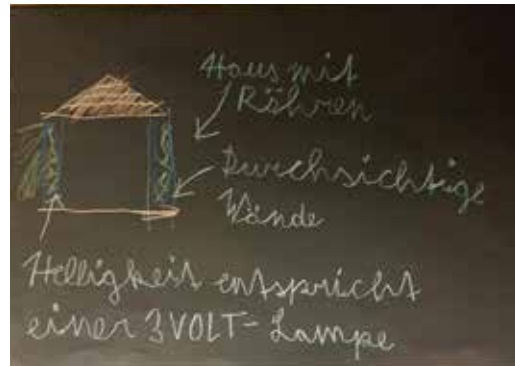 Haus mit
Röhren
Durchsichtige
Wände
Helligkeit entspricht
einer 3 VOLT-Lampe